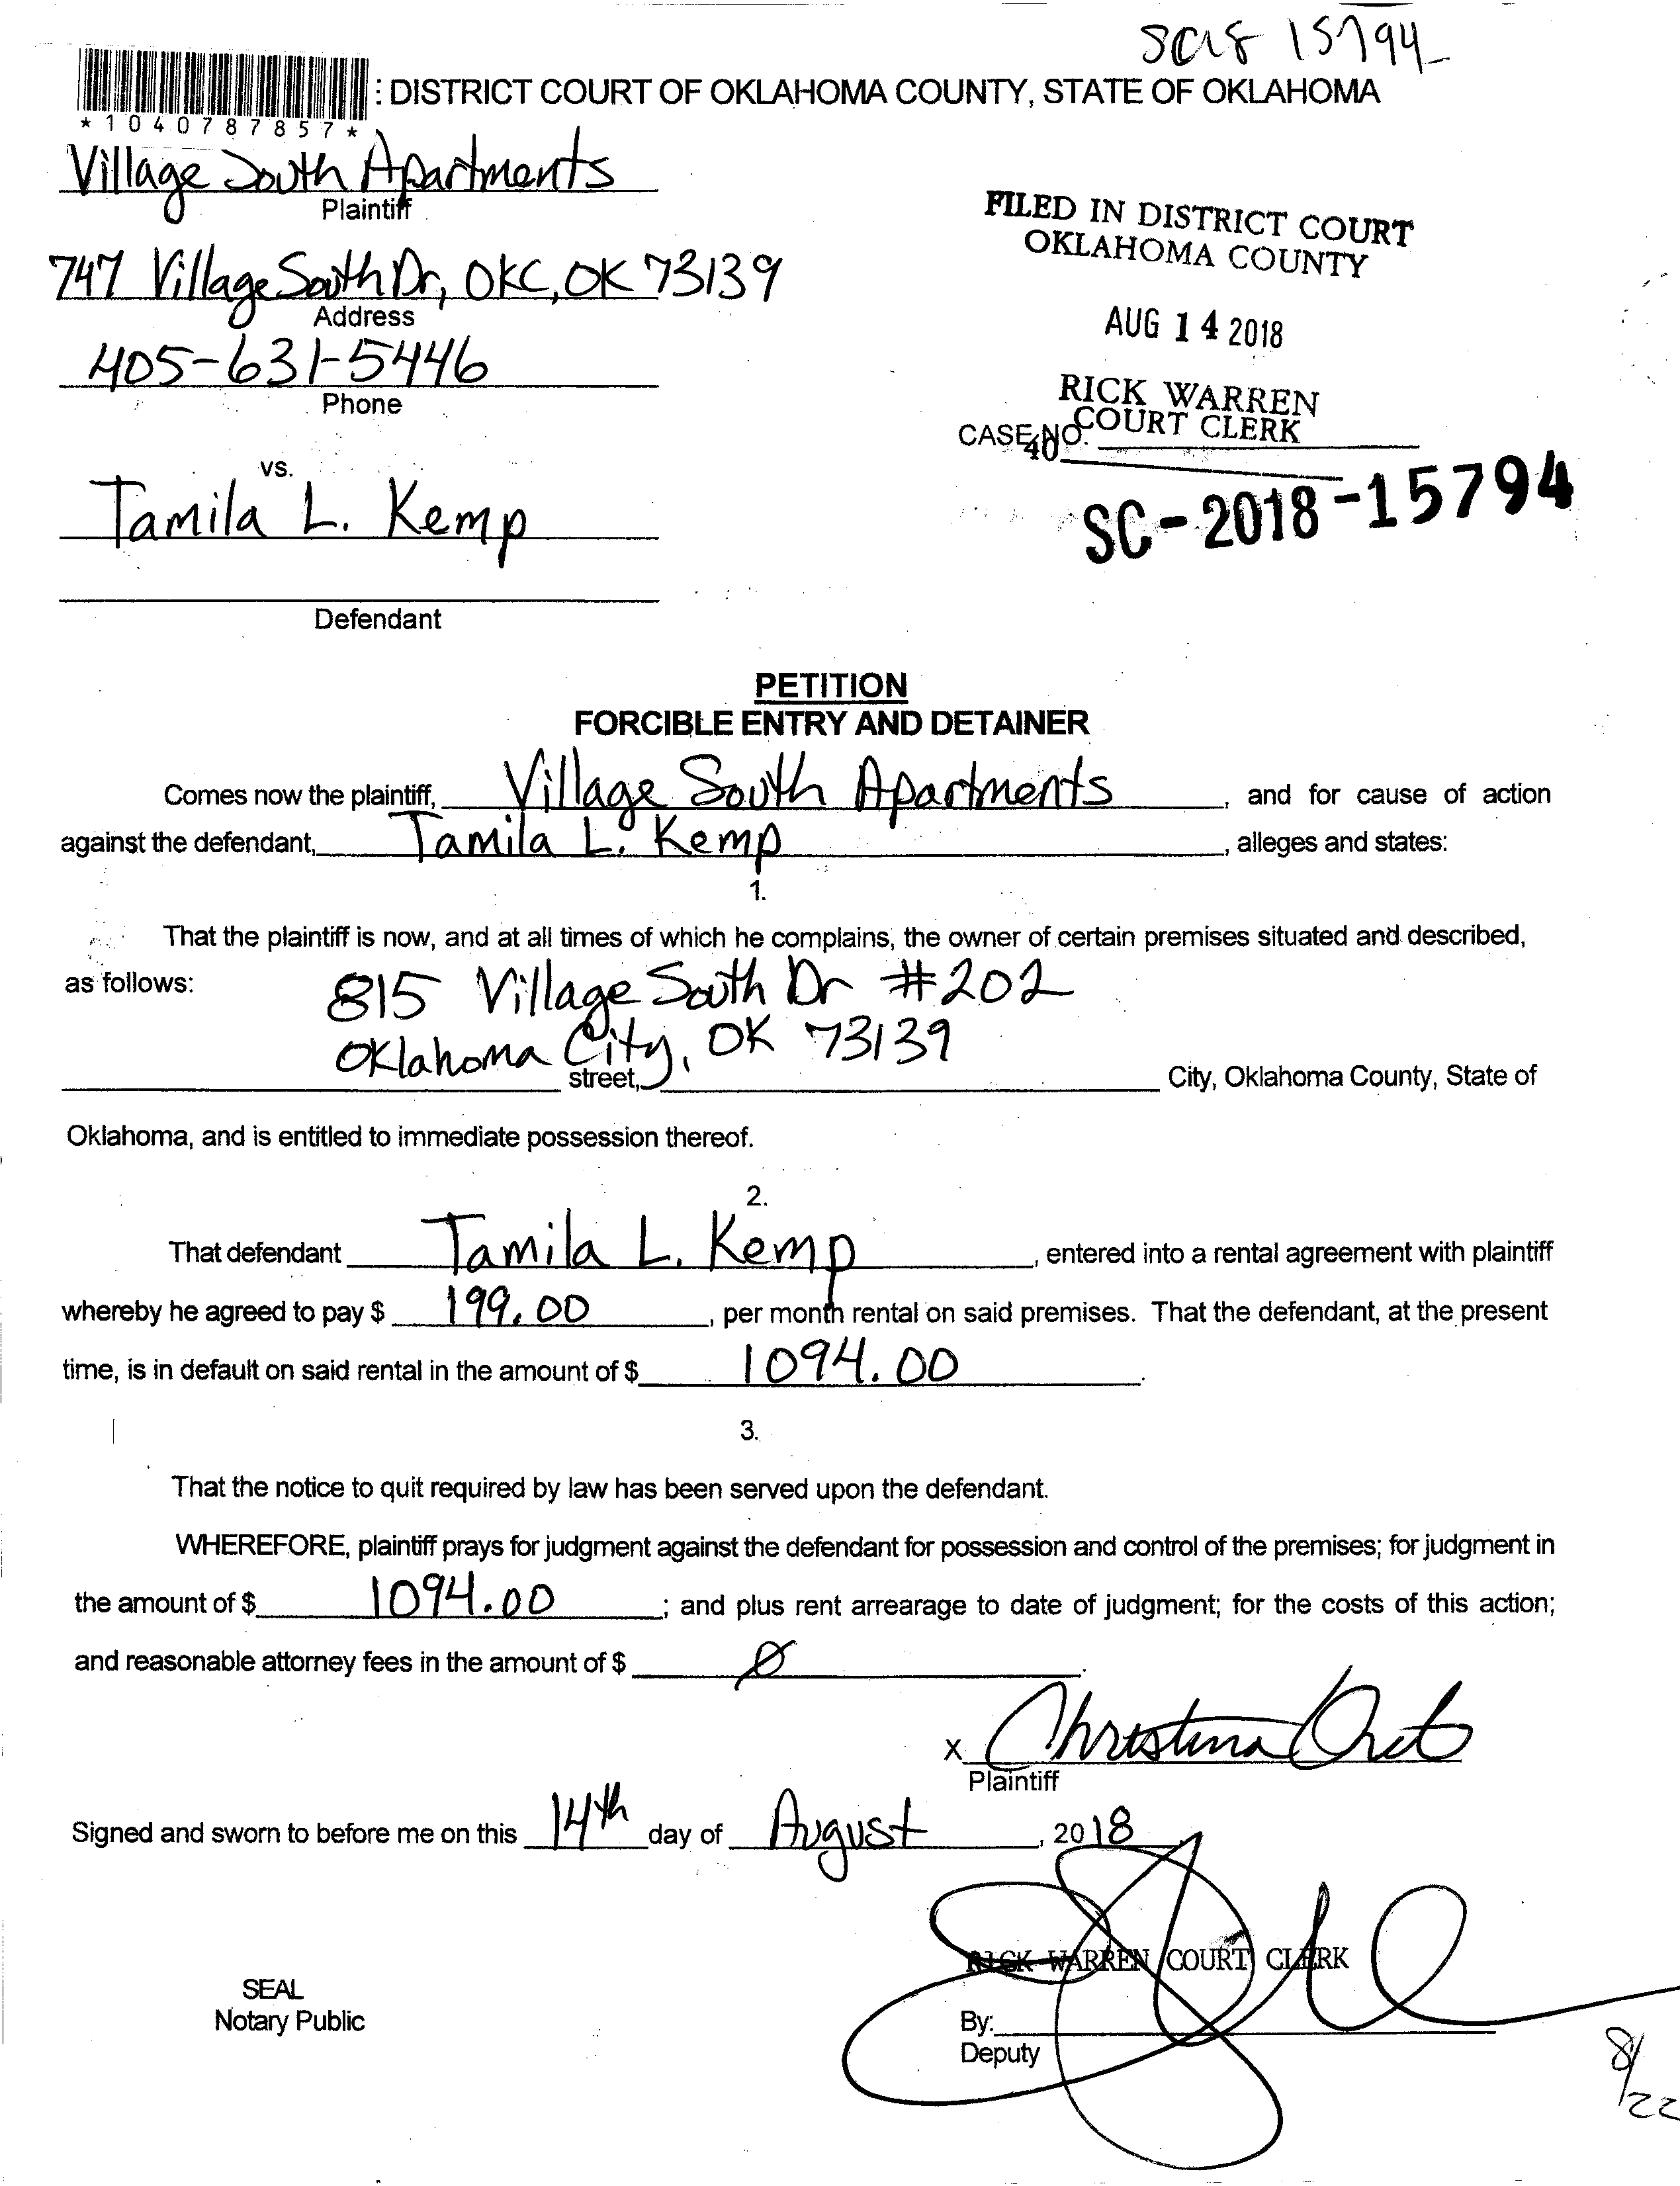 SC18 15794
: DISTRICT COURT OF OKLAHOMA COUNTY, STATE OF OKLAHOMA
*1040787857*
Village South Apartments
Plaintiff
747 Village South Dr, OKC, OK 73139
Address
405-631-5446
Phone
vs.
Tamila L. Kemp
Defendant
FILED IN DISTRICT COURT
OKLAHOMA COUNTY
AUG 14 2018
RICK WARREN
COURT CLERK
CASE NO.
40
SC-2018-15794
PETITION
FORCIBLE ENTRY AND DETAINER
Comes now the plaintiff, Village South Apartments, and for cause of action
against the defendant, Tamila L. Kemp, alleges and states:
1.
That the plaintiff is now, and at all times of which he complains, the owner of certain premises situated and described,
as follows: 815 Village South Dr #202
Oklahoma City, OK 73139
street, City, Oklahoma County, State of
Oklahoma, and is entitled to immediate possession thereof.
2.
That defendant Tamila L. Kemp, entered into a rental agreement with plaintiff
whereby he agreed to pay $ 199.00, per month rental on said premises. That the defendant, at the present
time, is in default on said rental in the amount of $ 1094.00.
3.
That the notice to quit required by law has been served upon the defendant.
WHEREFORE, plaintiff prays for judgment against the defendant for possession and control of the premises; for judgment in
the amount of $ 1094.00; and plus rent arrearage to date of judgment; for the costs of this action;
and reasonable attorney fees in the amount of $ Ø.
X Christina
Plaintiff
Signed and sworn to before me on this 14th day of August, 2018
RICK WARREN COURT CLERK
SEAL
Notary Public
By:
Deputy
8/22